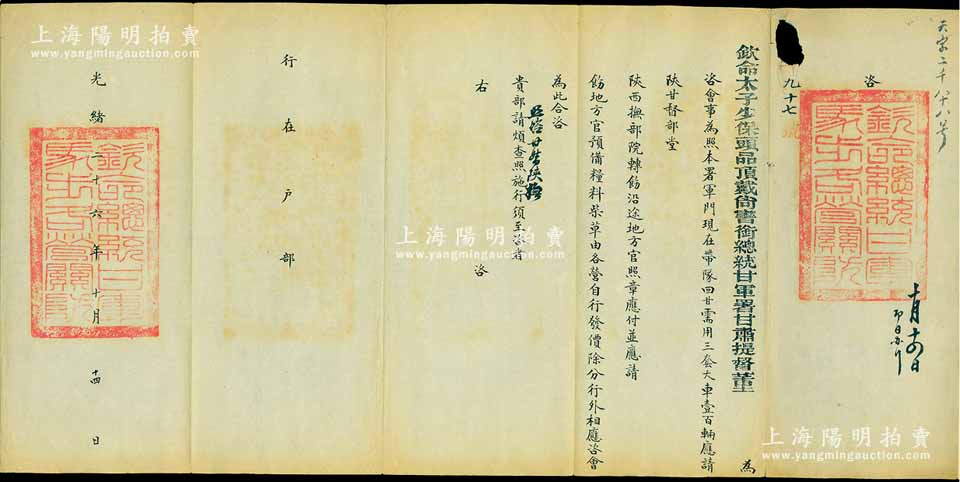 天字二千八十八号
咨
九十七
十月十四日
即日亦行
欽命太子少保頭品頂戴尚書銜總統甘軍署甘肅提督董 為
咨會事為照本署軍門現在帶隊回甘需用三套大車壹百輛應請
陝甘督部堂
陝西撫部院轉飭沿途地方官照章應付並應請
飭地方官預備糧料柴草由各營自行發價除分行外相應咨會
為此合咨
貴部請煩查照施行須至咨者
右 咨
行在戶部
光緒二十六年十月十四日
欽命總統甘軍
馬步各營關防
上海陽明拍賣
www.yangmingauction.com
上海陽明拍賣
www.yangmingauction.com
上海陽明拍賣
www.yangmingauction.com